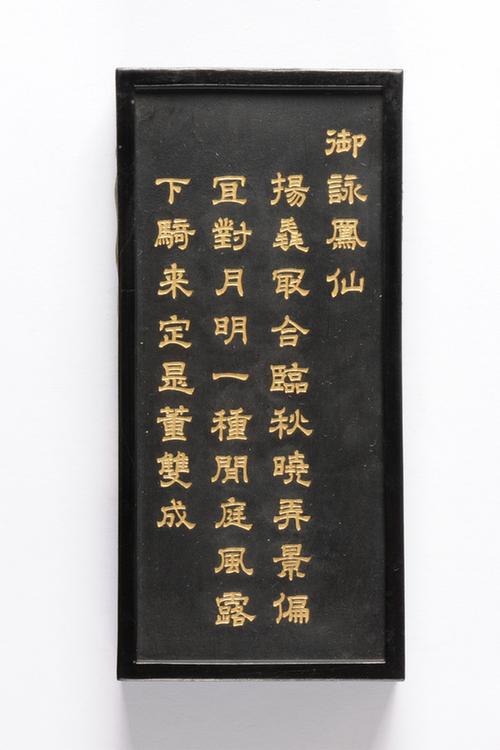 御詠鳳仙
揚冣合臨秋曉弄景偏
冝對月明一種閒庭風露
下騎来定是董雙成